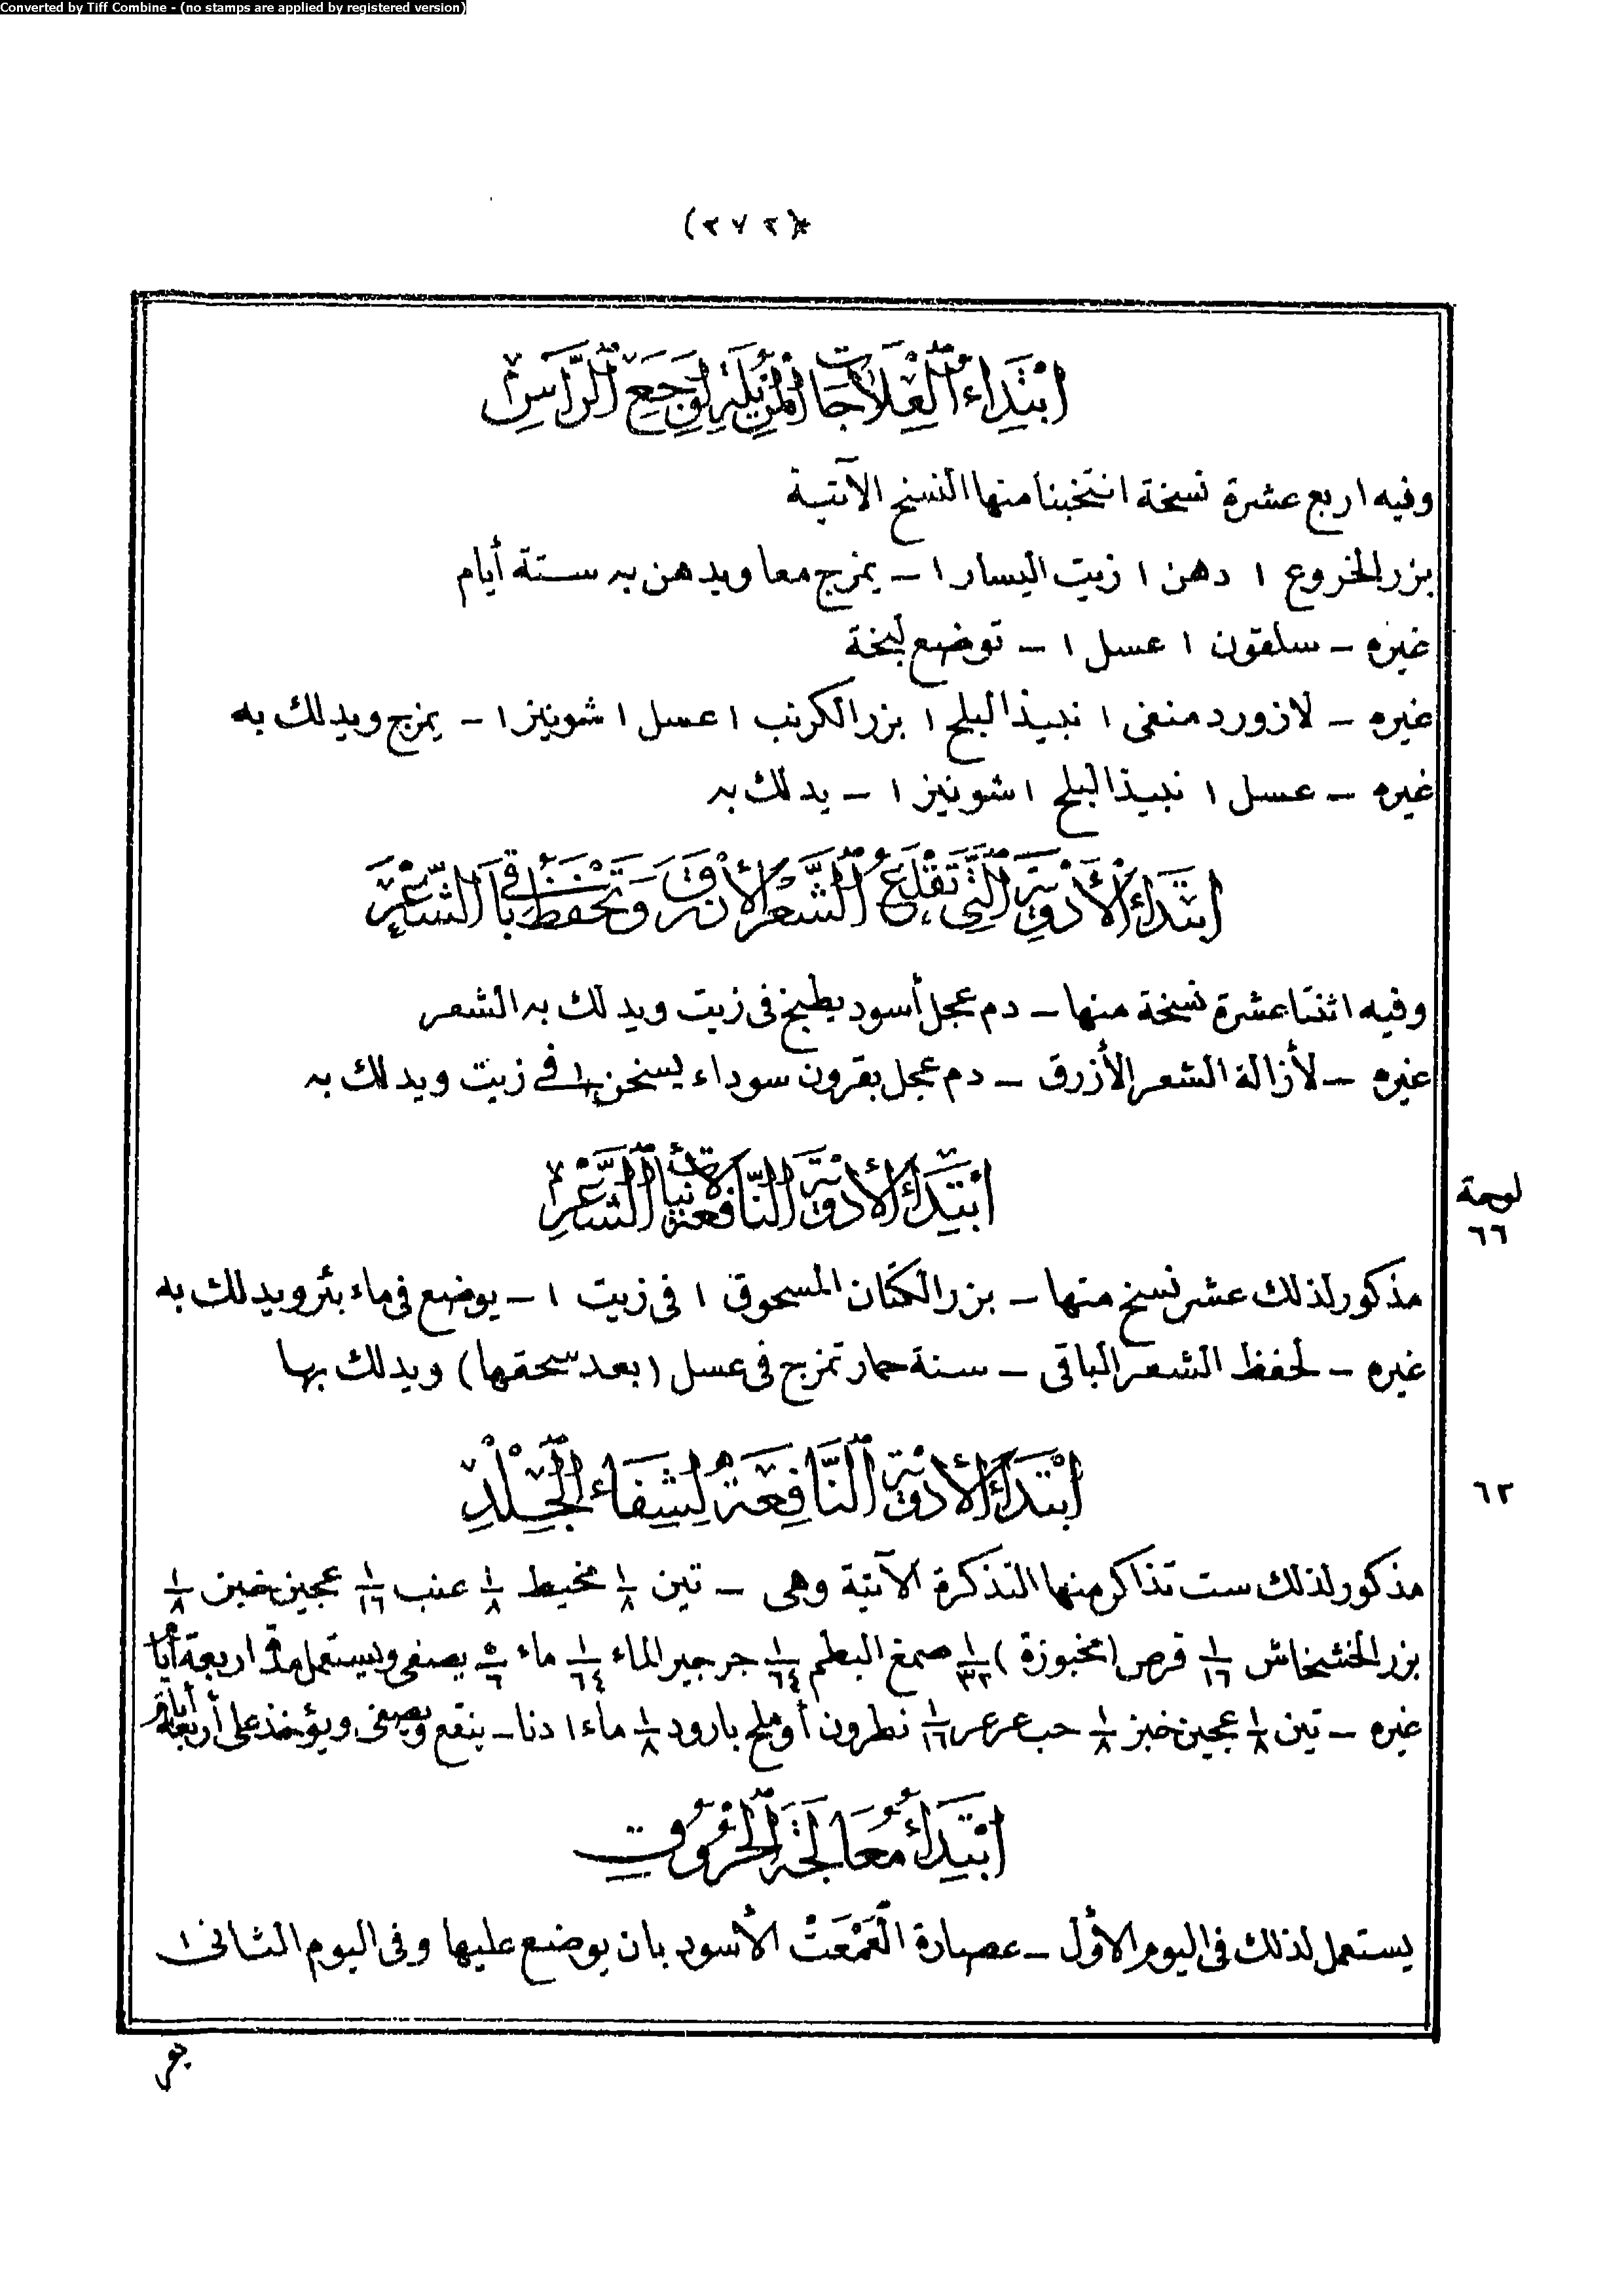 Converted by Tiff Combine - (no stamps are applied by registered version)
(٢٧٢)
ابْتِدَاءُ الْعِلَاجَات الْمُزِيلَةِ لِوَجَعِ الرَّاسِ
وفيه اربع عشرة نسخة انتخبنا منها النسخ الآتية
بزر الخروع ١ دهن ١ زيت اليسار ١ – يمزج معا ويدهن به ستة أيام
غيره – سلقون ١ عسل ١ – توضع لبخة
غيره – لازورد منفى ١ نبيذ البلح ١ بزر الكرنب ١ عسل ١ شونيز ١ – يمزج ويدلك به
غيره – عسل ١ نبيذ البلح ١ شونيز ١ – يدلك به
ابْتَدَاءُ الْأَدْوِيَةِ الَّتِي تَقْلَعُ الشَّعْرَ الْأَزْرَقَ وَتَحْفَظ بَاقِي الشَّعْرِ
وفيه اثنتا عشرة نسخة منها – دم عجل أسود يطبخ فى زيت ويدلك به الشعر
غيره – لأزالة الشعر الأزرق – دم عجل بقرون سوداء يسخن فى زيت ويدلك به
ابْتِدَاءُ الْأَدْوِيَةِ النَّافِعَة لإنبات الشَّعْرِ
لوحة
٦٦
مذكور لذلك عشر نسخ منها – بزر الكتان المسحوق ١ فى زيت ١ – يوضع فى ماء بئر ويدلك به
غيره – لحفظ الشعر الباقى – سنة حمار تمزج فى عسل (بعد سحقها) ويدلك بها
ابْتِدَاءُ الأَدْوِيَة النَّافِعَةُ لِشِفَاء الْجِلْدِ
٦٢
مذكور لذلك ست تذاكر منها التذكرة الآتية وهى – تين ١/٨ مخيط ١/٨ عنب ١/١٦ عجين خبز ١/٨
بزر الخشخاش ١/١٦ قرص (مخبوزة) ١/٣٢ صمغ البطم ١/٦٤ جرجير الماء ١/٦٤ ماء ٥/٦ يصفى ويستعمل مدة اربعة أيام
غيره – تين ١/٨ عجين خبز ١/٨ حب عرعر ١/١٦ نطرون أو ملح بارود ١/٨ ماء ١ دنا – ينقع ويصفى ويؤخذ على أربعة أيام
ابْتِدَاءُ مُعَالَجَةِ الْحُرُوقِ
يستعمل لذلك فى اليوم الأول – عصارة الْعَمْعَتْ الأسود بان يوضع عليها وفى اليوم الثانى